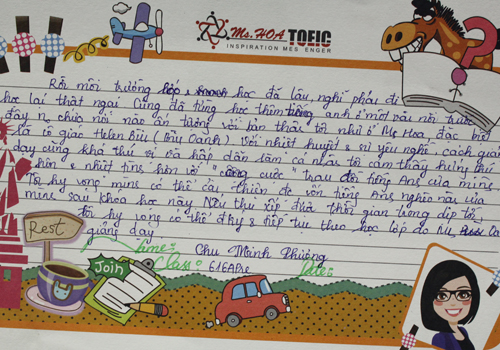 Ms. HOA TOEIC
INSPIRATION MESSENGER
Rời môi trường học đã lâu, nghĩ phải đi
học lại thật ngại. Cũng đã từng học thêm tiếng anh ở một vài nơi trước
đây nhưng chưa nơi nào ấn tượng với bản thân tôi như ở Ms Hoa, đặc biệt
là cô giáo Helen Bùi (Thu Oanh) với nhiệt huyết & sự yêu nghề, cách giảng
dạy cũng khá thú vị và hấp dẫn làm cá nhân tôi cảm thấy hứng thú
hơn & nhiệt tình hơn với "công cuộc" trau dồi tiếng Anh của mình
Tôi hy vọng mình có thể cải thiện vốn tiếng Anh nghèo nàn của
mình sau khóa học này. Nếu thu xếp được thời gian trong dịp tới,
tôi hy vọng có thể tiếp tục theo học lớp do
giảng dạy
Rest
Name: Chu Minh Phượng
Join
Class: 616A Pre